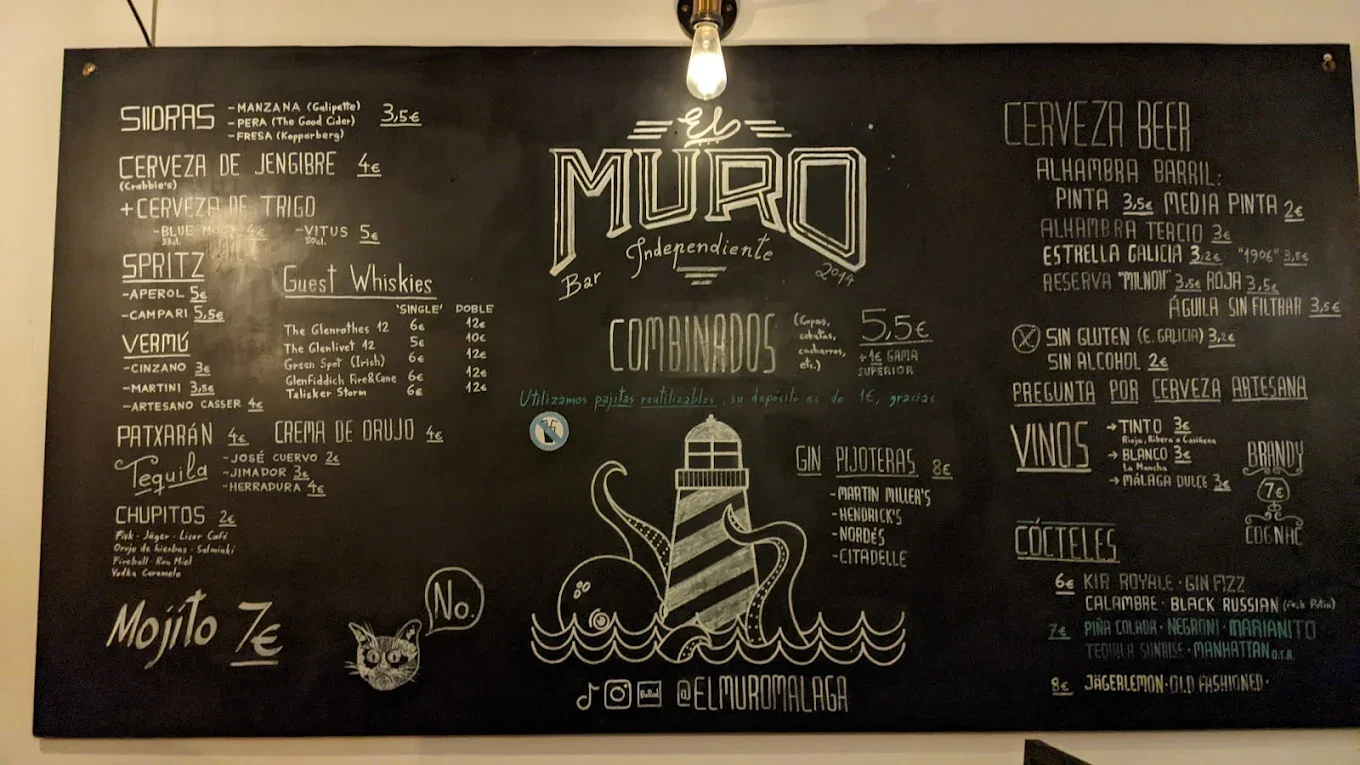 SIIDRAS -MANZANA (Galipette) 3,5€
-PERA (The Good Cider)
-FRESA (Kopparberg)
CERVEZA DE JENGIBRE 4€
(Crabbie's)
+CERVEZA DE TRIGO
-BLUE MOON 4€ -VITUS 5€
33cl. 50cl.
SPRITZ
-APEROL 5€
-CAMPARI 5,5€
VERMÚ
-CINZANO 3€
-MARTINI 3,5€
-ARTESANO CASSER 4€
Guest Whiskies
'SINGLE' DOBLE
The Glenrothes 12 6€ 12€
The Glenlivet 12 5€ 10€
Green Spot (Irish) 6€ 12€
Glenfiddich Fire&Cane 6€ 12€
Talisker Storm 6€ 12€
PATXARÁN 4€ CREMA DE ORUJO 4€
Tequila -JOSÉ CUERVO 2€
-JIMADOR 3€
-HERRADURA 4€
CHUPITOS 2€
Fisk · Jäger · Licor Café
Orujo de hierbas · Salmiaki
Fireball · Ron Miel
Vodka Caramelo
Mojito 7€
No.
El
MURO
Independiente
Bar 2014
COMBINADOS (Copas, cubatas, cacharros, etc.) 5,5€
+1€ GAMA
SUPERIOR
Utilizamos pajitas reutilizables, su depósito es de 1€, gracias
GIN PIJOTERAS 8€
-MARTIN MILLER'S
-HENDRICK'S
-NORDÉS
-CITADELLE
@ELMUROMALAGA
CERVEZA BEER
ALHAMBRA BARRIL:
PINTA 3,5€ MEDIA PINTA 2€
ALHAMBRA TERCIO 3€
ESTRELLA GALICIA 3,2€ "1906" 3,5€
RESERVA "MILNOH" 3,5€ ROJA 3,5€
ÁGUILA SIN FILTRAR 3,5€
SIN GLUTEN (E. GALICIA) 3,2€
SIN ALCOHOL 2€
PREGUNTA POR CERVEZA ARTESANA
VINOS →TINTO 3€
Rioja, Ribera o Cariñena
→BLANCO 3€
La Mancha
→MÁLAGA DULCE 3€
BRANDY
7€
COGNAC
CÓCTELES
6€ KIR ROYALE · GIN FIZZ
CALAMBRE · BLACK RUSSIAN (Fuck Putin)
7€ PIÑA COLADA · NEGRONI · MARIANITO
TEQUILA SUNRISE · MANHATTAN O.T.R.
8€ JÄGERLEMON · OLD FASHIONED ·